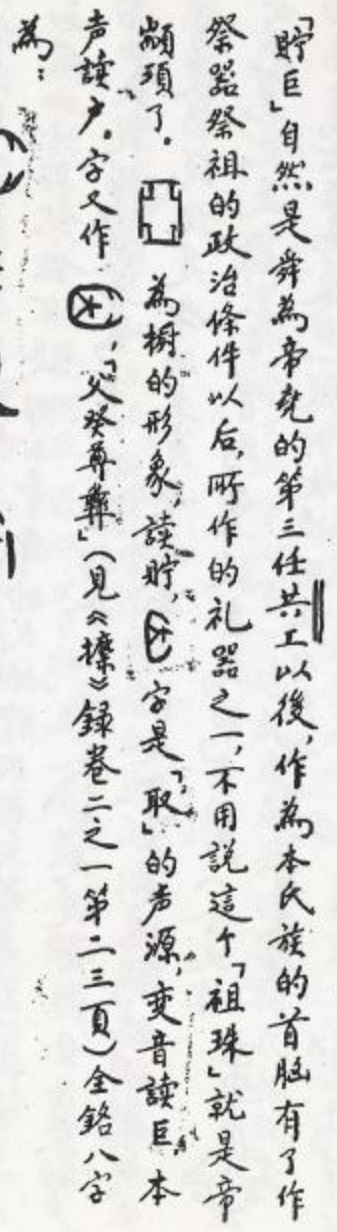 「貯巨」自然是舜為帝尭的第三任共工以後，作為本氏族的首脑有了作
祭器祭祖的政治條件以后，所作的礼器之一，不用説這个「祖珠」就是帝
顓頊了。 為橱的形象，讀貯， 字是「取」的声源，变音讀巨，本
声讀户。字又作 ，「父癸尊彝」（見《攈》録卷二之一第二三頁）全銘八字
為：